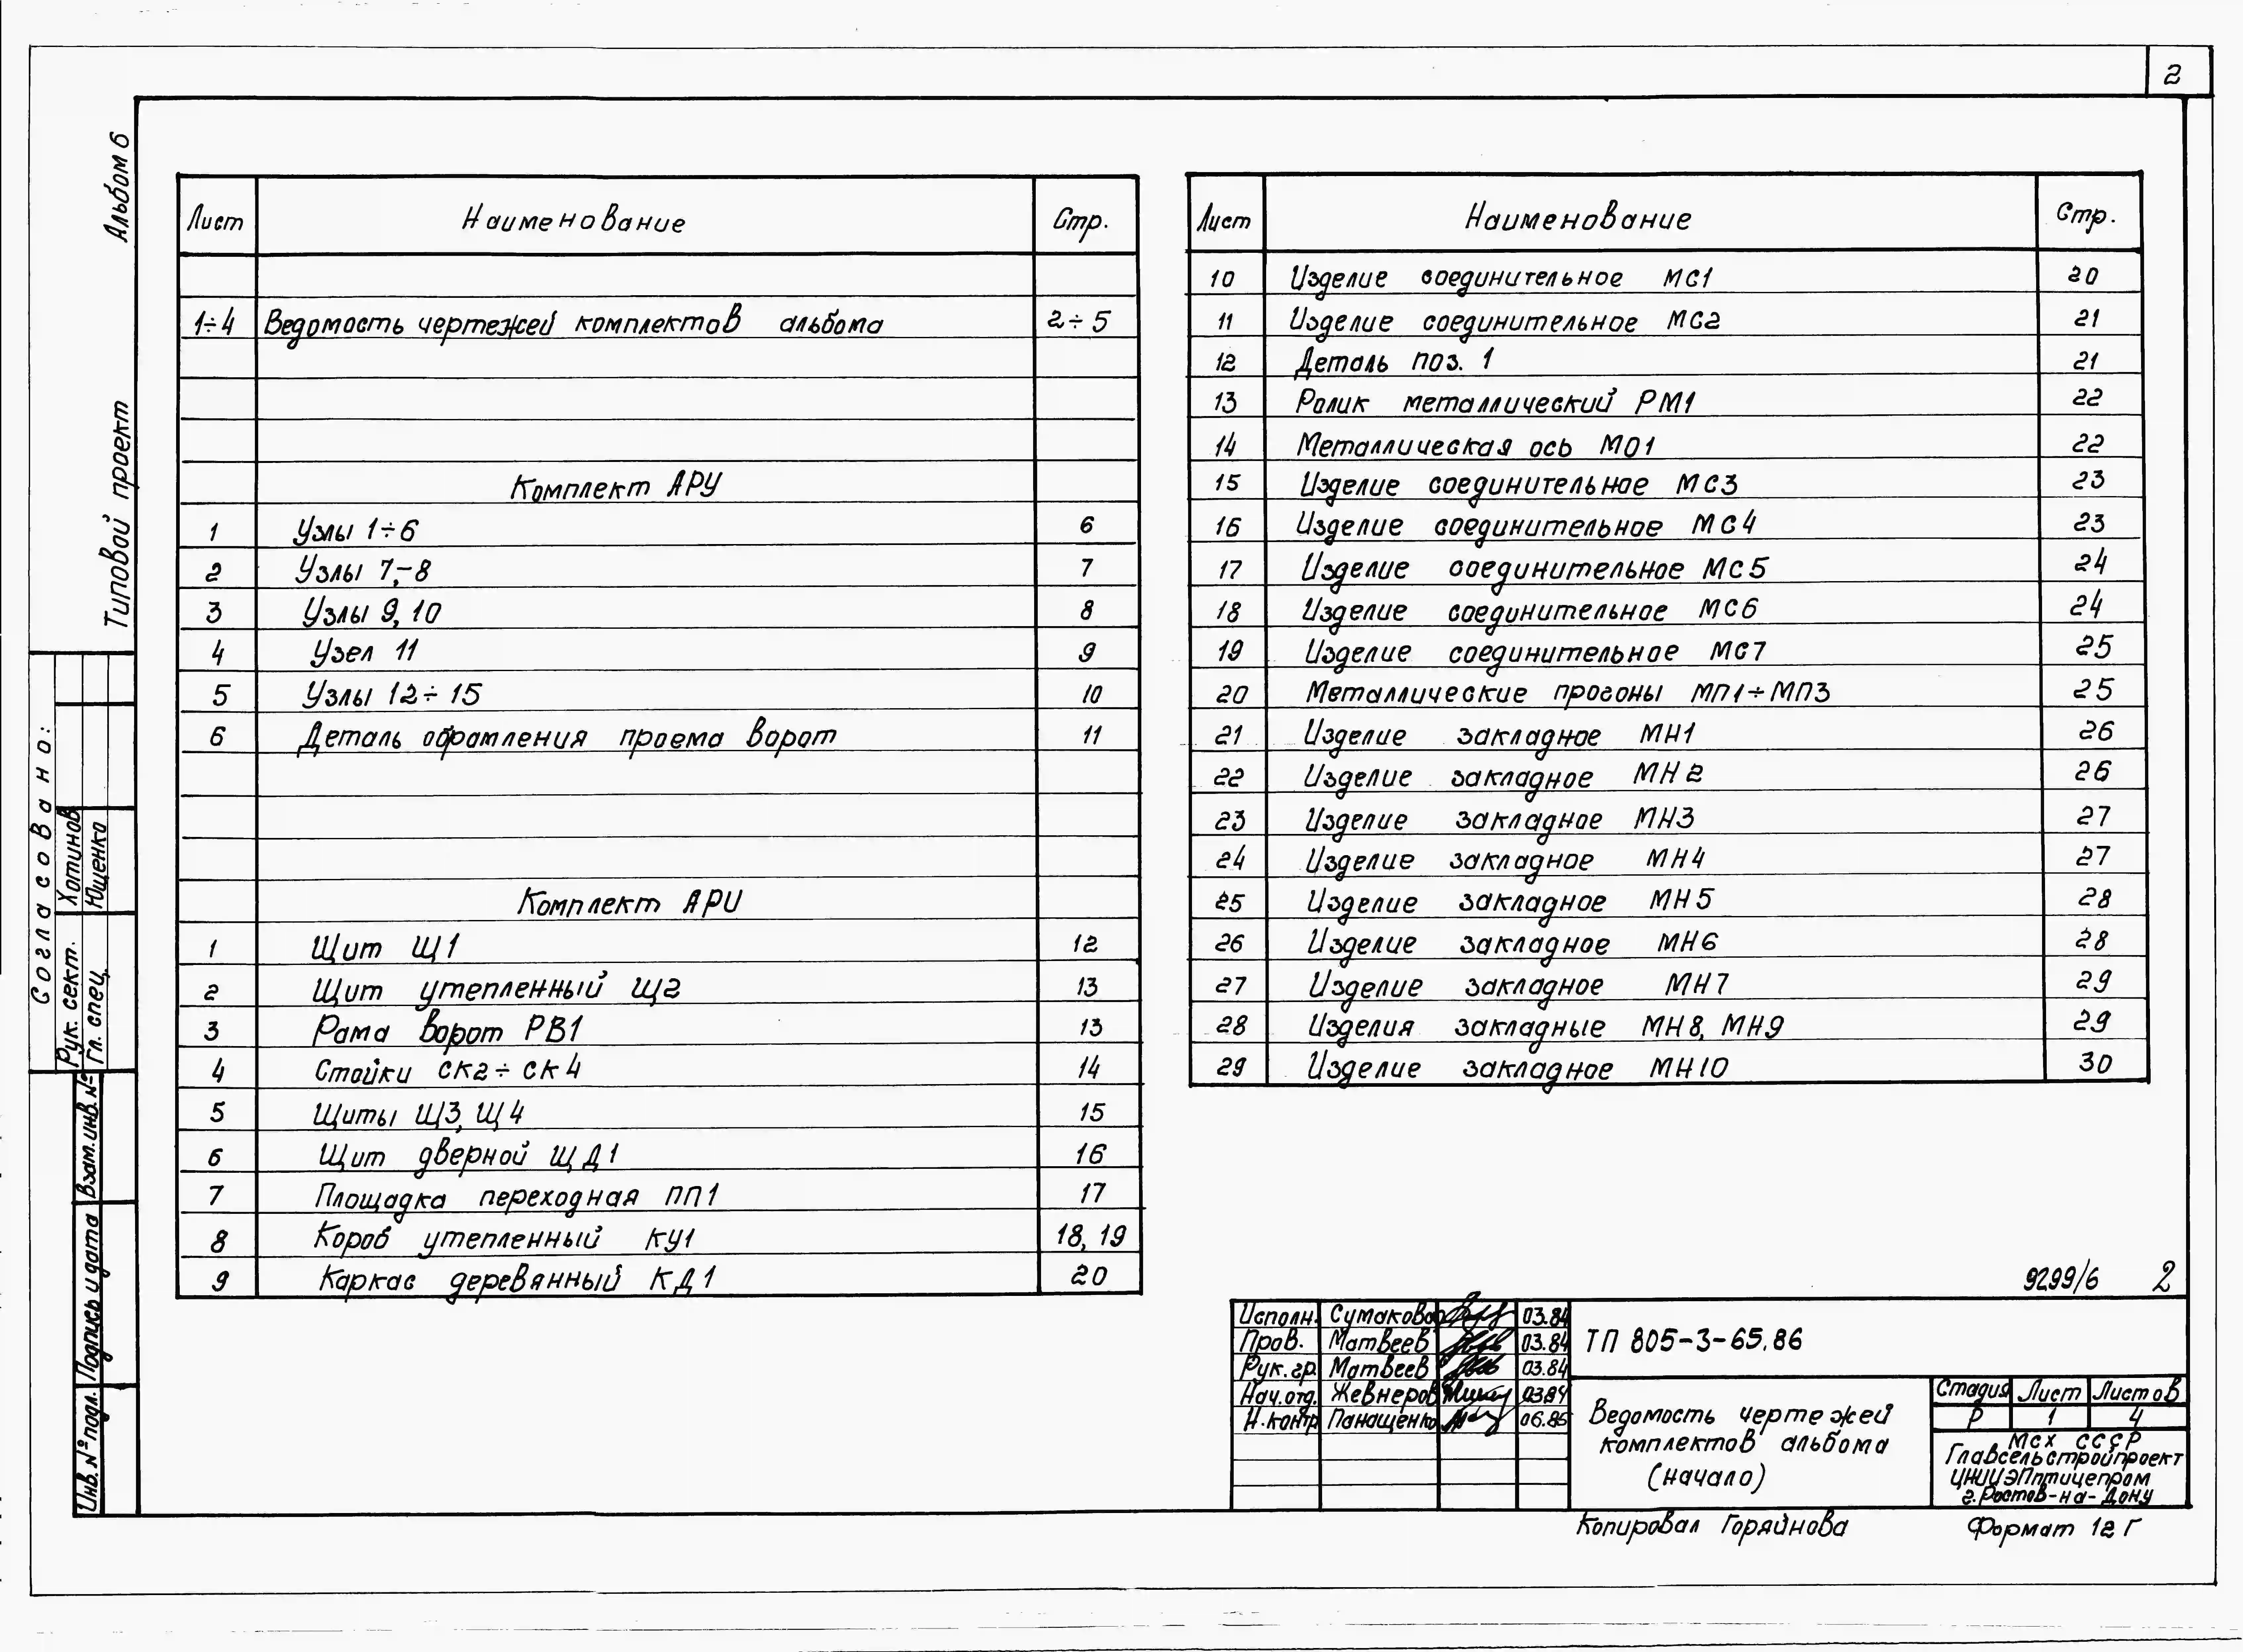 2
Альбом 6
Типовой проект
Согласовано:
Рук. сект. Хотинов
Гл. спец. Ющенко
Взам. инв. №
Подпись и дата
Инв. № подл.
Лист Наименование Стр.
1÷4 Ведомость чертежей комплектов альбома 2÷5
Комплект АРУ
1 Узлы 1÷6 6
2 Узлы 7,-8 7
3 Узлы 9, 10 8
4 Узел 11 9
5 Узлы 12÷15 10
6 Деталь обрамления проема ворот 11
Комплект АРИ
1 Щит Щ1 12
2 Щит утепленный Щ2 13
3 Рама ворот РВ1 13
4 Стойки СК2÷СК4 14
5 Щиты Щ3, Щ4 15
6 Щит дверной ЩД1 16
7 Площадка переходная ПП1 17
8 Короб утепленный КУ1 18, 19
9 Каркас деревянный КД1 20
Лист Наименование Стр.
10 Изделие соединительное МС1 20
11 Изделие соединительное МС2 21
12 Деталь поз. 1 21
13 Ролик металлический РМ1 22
14 Металлическая ось МО1 22
15 Изделие соединительное МС3 23
16 Изделие соединительное МС4 23
17 Изделие соединительное МС5 24
18 Изделие соединительное МС6 24
19 Изделие соединительное МС7 25
20 Металлические прогоны МП1÷МП3 25
21 Изделие закладное МН1 26
22 Изделие закладное МН2 26
23 Изделие закладное МН3 27
24 Изделие закладное МН4 27
25 Изделие закладное МН5 28
26 Изделие закладное МН6 28
27 Изделие закладное МН7 29
28 Изделия закладные МН8, МН9 29
29 Изделие закладное МН10 30
9299/6 2
Исполн. Сумакова 03.84
Пров. Матвеев 03.84
Рук. гр. Матвеев 03.84
Нач. отд. Жевнеров 03.84
Н. контр. Панащенко 06.86
ТП 805-3-65.86
Ведомость чертежей
комплектов альбома
(начало)
Стадия Лист Листов
Р 1 4
МСХ СССР
Главсельстройпроект
ЦНИИЭПптицепром
г. Ростов-на-Дону
Копировал Горяйнова Формат 12Г